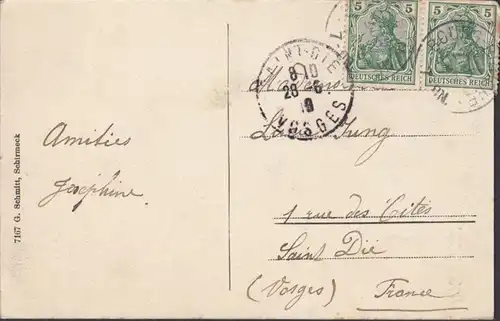 5 5
DEUTSCHES REICH DEUTSCHES REICH
SAINT-DIÉ
8 10
28 - 6
VOSGES
Amitiés
Joséphine
7167 G. Schmitt, Schirmeck
Jung
1 rue des Cités
Saint Dié
(Vosges) France